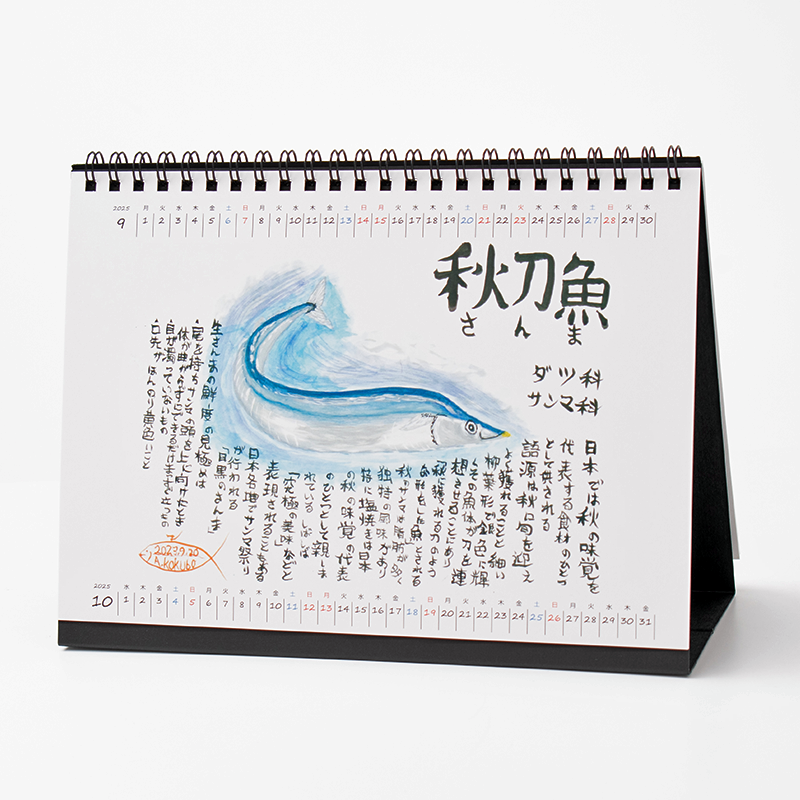 2025
月 火 水 木 金 土 日 月 火 水 木 金 土 日 月 火 水 木 金 土 日 月 火 水 木 金 土 日 月 火
9 1 2 3 4 5 6 7 8 9 10 11 12 13 14 15 16 17 18 19 20 21 22 23 24 25 26 27 28 29 30
秋刀魚
さんま
ダツ科
サンマ科
日本では秋の味覚を
代表する食材のひとつ
として供される
語源は秋に旬を迎え
よく獲れることと細い
柳葉形で銀色に輝
くその魚体が刀を連
想させることにあり
「秋に獲れる刀のよう
な形をした魚」とされる
秋のサンマは脂肪が多く
独特の風味があり
特に塩焼きは日本
の秋の味覚の代表
のひとつとして親しま
れている しばしば
「究極の美味」などと
表現されることもある
日本各地でサンマ祭り
が行われる
「目黒のさんま」
生さんまの鮮度の見極めは
・尾を持ちサンマの頭を上に向けたとき
体が曲がらずにできるだけまっすぐ立つもの
・目が濁っていないもの
・口先がほんのり黄色いこと
2023.9.20
A.KOKUBO
2025
水 木 金 土 日 月 火 水 木 金 土 日 月 火 水 木 金 土 日 月 火 水 木 金 土 日 月 火 水 木 金
10 1 2 3 4 5 6 7 8 9 10 11 12 13 14 15 16 17 18 19 20 21 22 23 24 25 26 27 28 29 30 31